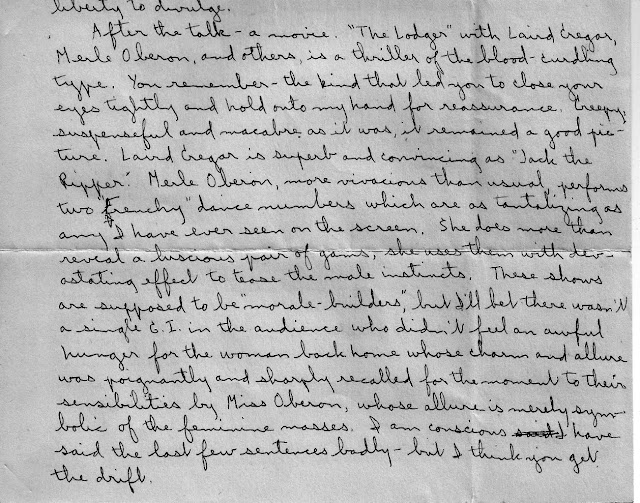 liberty to divulge.
After the talk - a movie. "The Lodger" with Laird Cregar,
Merle Oberon, and others, is a thriller of the blood-curdling
type. You remember - the kind that led you to close your
eyes tightly and hold onto my hand for reassurance. Creepy,
suspenseful and macabre, as it was, it remained a good pic-
ture. Laird Cregar is superb and convincing as "Jack the
Ripper". Merle Oberon, more vivacious than usual, performs
two "frenchy" dance numbers which are as tantalizing as
any I have ever seen on the screen. She does more than
reveal a luscious pair of gams; she uses them with dev-
astating effect to tease the male instincts. These shows
are supposed to be "morale-builders", but I'll bet there wasn't
a single G.I. in the audience who didn't feel an awful
hunger for the woman back home whose charm and allure
was poignantly and sharply recalled for the moment to their
sensibilities by Miss Oberon, whose allure is merely sym-
bolic of the feminine masses. I am conscious said I have
said the last few sentences badly - but I think you get
the drift.